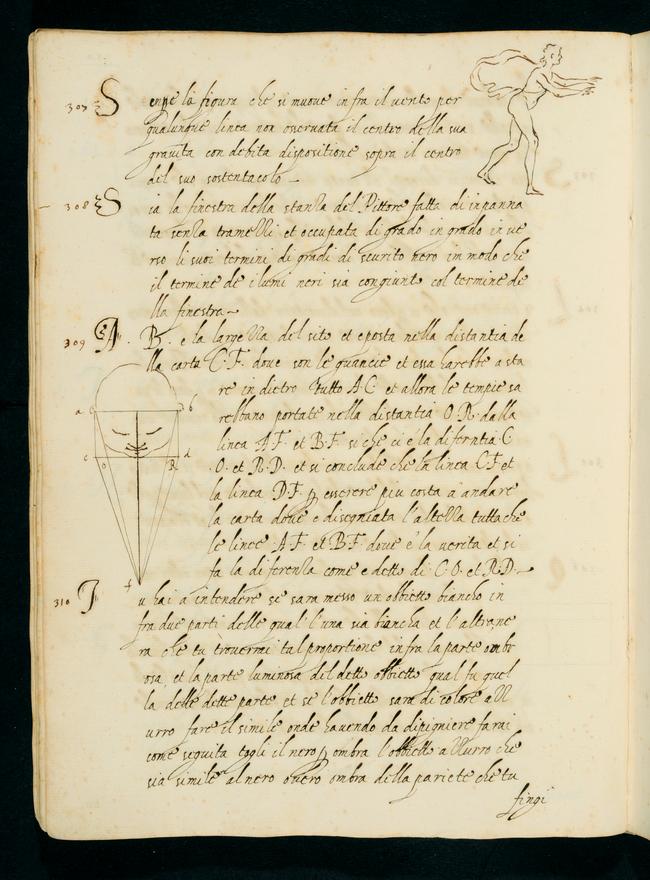 307 Senpe la figura che si muove infra il vento per
qualunque linea non osservata il centro della sua
gravita con debita dispositione sopra il centro
del suo sostentacolo —
308 Sia la finestra della stanza del Pittore fatta di inpanna
ta senza tramezzi et occupata di grado in grado in ve
rso li suoi termini di gradi di scurito nero in modo che
il termine de i lumi neri sia congiunto col termine de
lla finestra —
309 A. B. e la largezza del sito et eposta nella distantia de
lla carta C.F. dove son le guancie et essa harebbe a sta
re in dietro tutto A C et allora le tempie sa
rebbano portate nella distantia O.R. dalla
linea A.F. et B.F. si che ci e la diferntia C
O. et R.D. et si conclude che la linea C.F. et
la linea D.F. p essere piu corta a andare
la carta dove e disegniata l'altezza tutta che
le linee A.F. et B.F. dove è la verita et si
fa la diferenza come e detto di C.O. et R.D. —
a b
c o R d
f
310 Tu hai a intendere se sara messo un obbietto biancho in
fra due parieti delle quali l'una sia biancha et l'altra ne
ra che tu troverrai tal proportione infra la parte ombr
osa et la parte luminosa del detto obbietto qual fu quel
la delle dette parte et se l'obbietto sara di colore azz
urro fare il simile onde havendo da dipigniere farai
come seguita togli il nero p ombra l'obbietto azzurro che
sia simile al nero overo ombra della pariete che tu
fingi